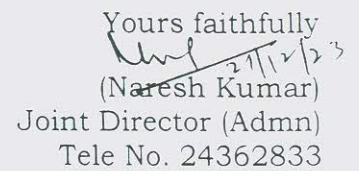 Yours faithfully
27/12/23
(Naresh Kumar)
Joint Director (Admn)
Tele No. 24362833